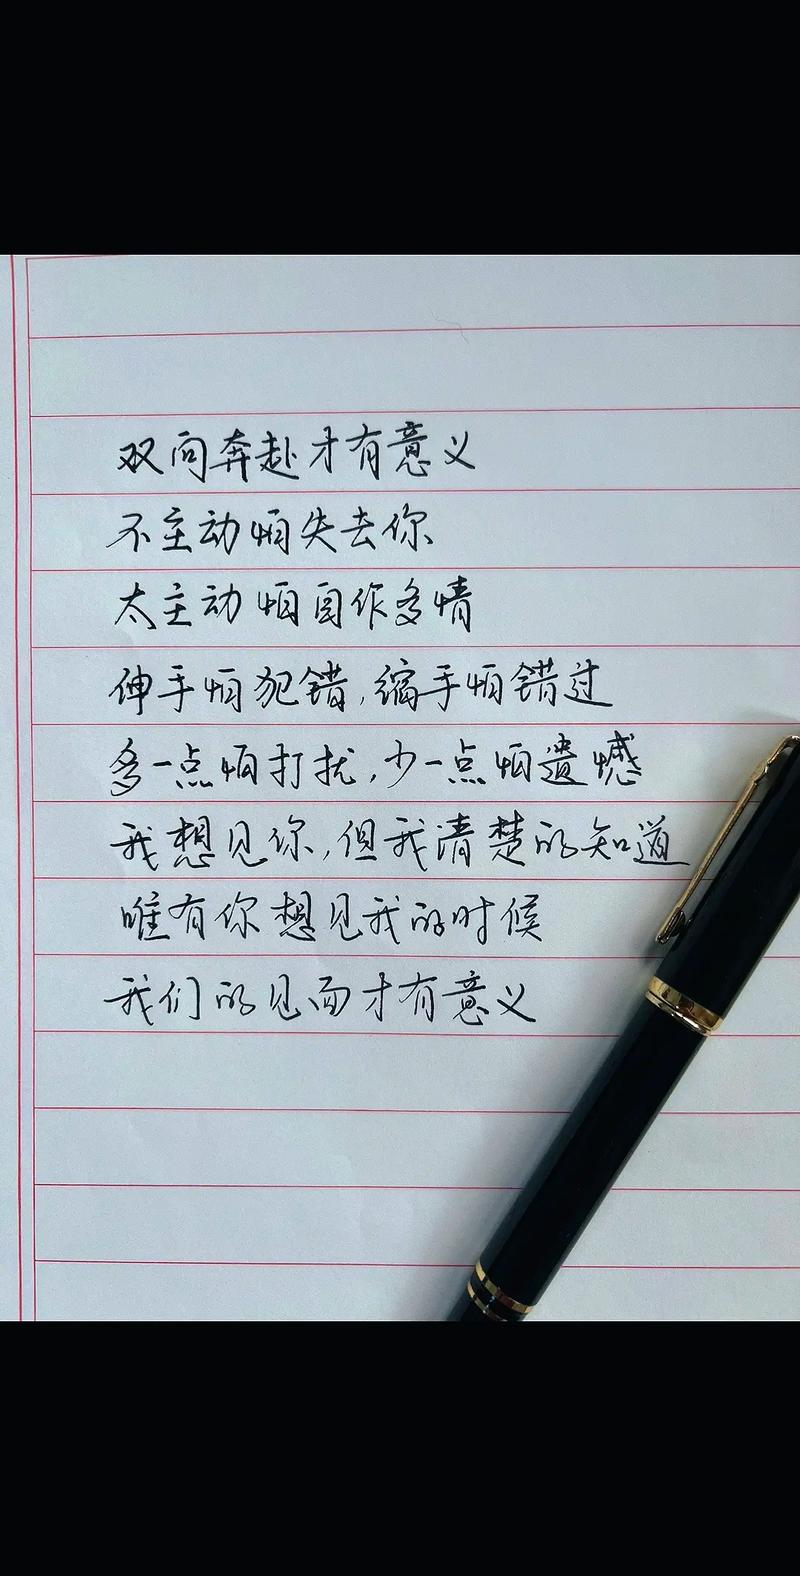 双向奔赴才有意义
不主动怕失去你
太主动怕自作多情
伸手怕犯错,缩手怕错过
多一点怕打扰,少一点怕遗憾
我想见你,但我清楚的知道
唯有你想见我的时候
我们的见面才有意义